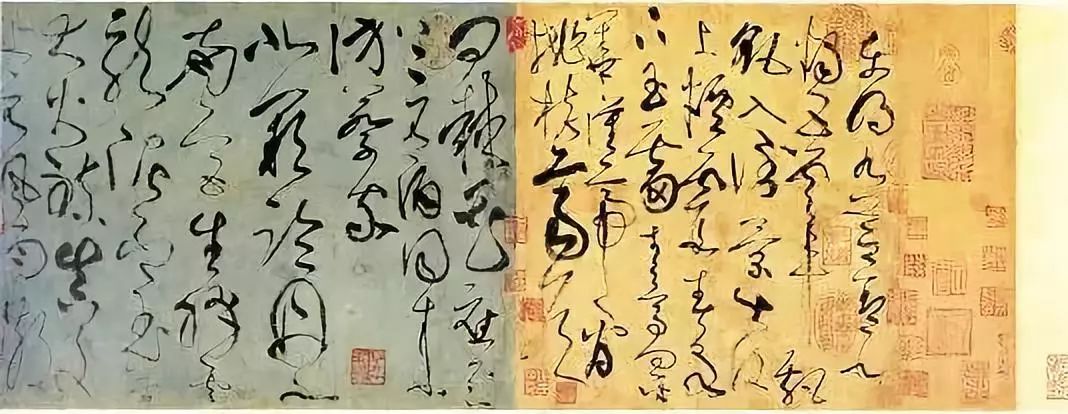 東明九芝蓋北
燭五雲車飄
飖入倒景出沒
上煙霞春泉
下玉霤青鳥向金
華漢帝看
桃核齊侯
問棘花應逐
上元酒同來
訪蔡家
北闕臨丹水
南宮生絳雲
龍泥印玉簡
大火煉真文
上元風雨散